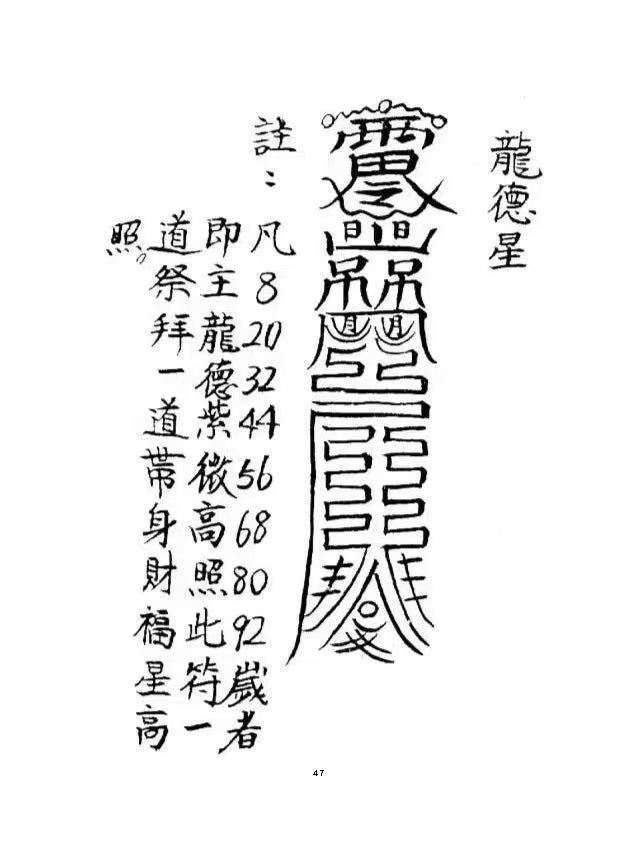 龍德星
註：
凡8 20 32 44 56 68 80 92歲者
即主龍德紫微高照此符一
道祭拜一道帶身財福星高
照。
47